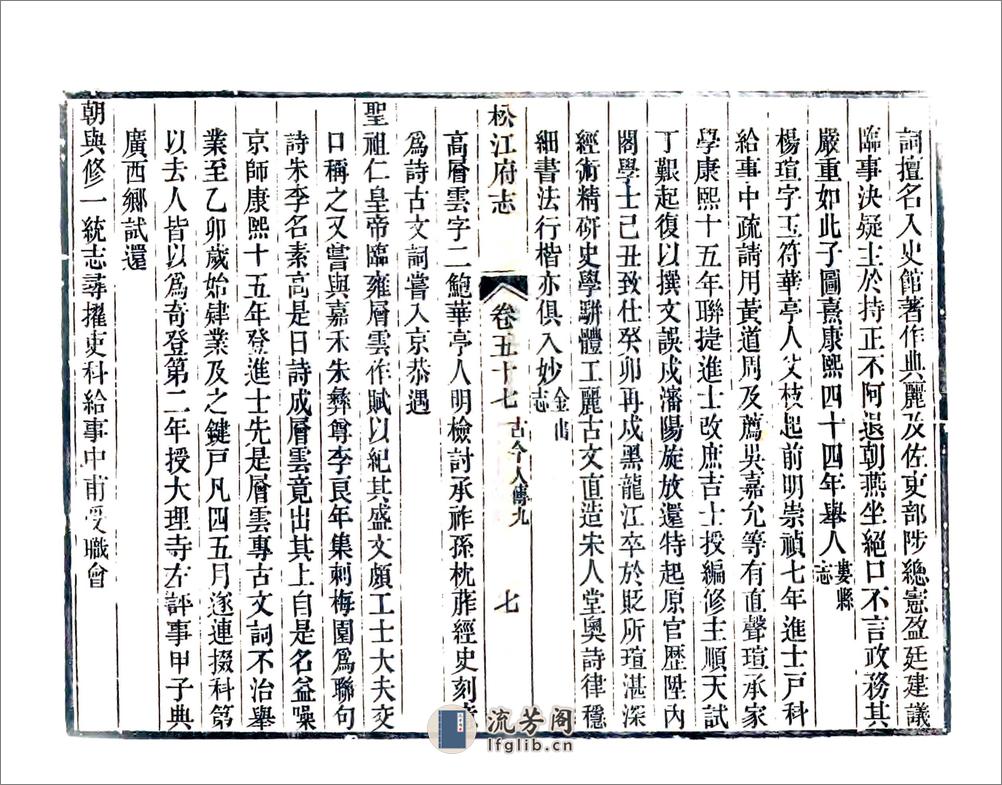 詞擅名入史館著作典麗及佐吏部陟總憲盈廷建議
臨事決疑主於持正不阿退朝燕坐絕口不言政務其
嚴重如此子圖熹康熙四十四年舉人婁縣志
楊瑄字玉符華亭人父枝起前明崇禎七年進士戸科
給事中疏請用黃道周及薦吳嘉允等有直聲瑄承家
學康熙十五年聯捷進士改庶吉士授編修主順天試
丁艱起復以撰文誤戍瀋陽旋放還特起原官歷陞內
閣學士己丑致仕癸卯再戍黑龍江卒於貶所瑄湛深
經術精硏史學駢體工麗古文直造宋人堂奧詩律穩
細書法行楷亦俱入妙金山志
松江府志
卷五十七
古今人傳九
七
高層雲字二鮑華亭人明檢討承祚孫枕葄經史刻意
爲詩古文詞嘗入京恭遇
聖祖仁皇帝臨雍層雲作賦以紀其盛文頗工士大夫交
口稱之又嘗與嘉禾朱彝尊李良年集刺梅園爲聯句
詩朱李名素高是日詩成層雲竟出其上自是名益噪
京師康熙十五年登進士先是層雲專古文詞不治舉
業至乙卯歲始肄業及之鍵戸凡四五月遂連掇科第
以去人皆以爲奇登第二年授大理寺左評事甲子典
廣西鄉試還
朝與修一統志尋擢吏科給事中甫受職會
流芳閣
lfglib.cn